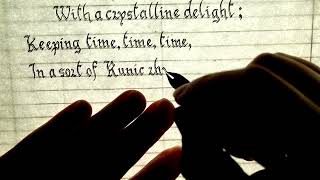 With a crystalline delight;
Keeping time, time, time,
In a sort of Runic rhy